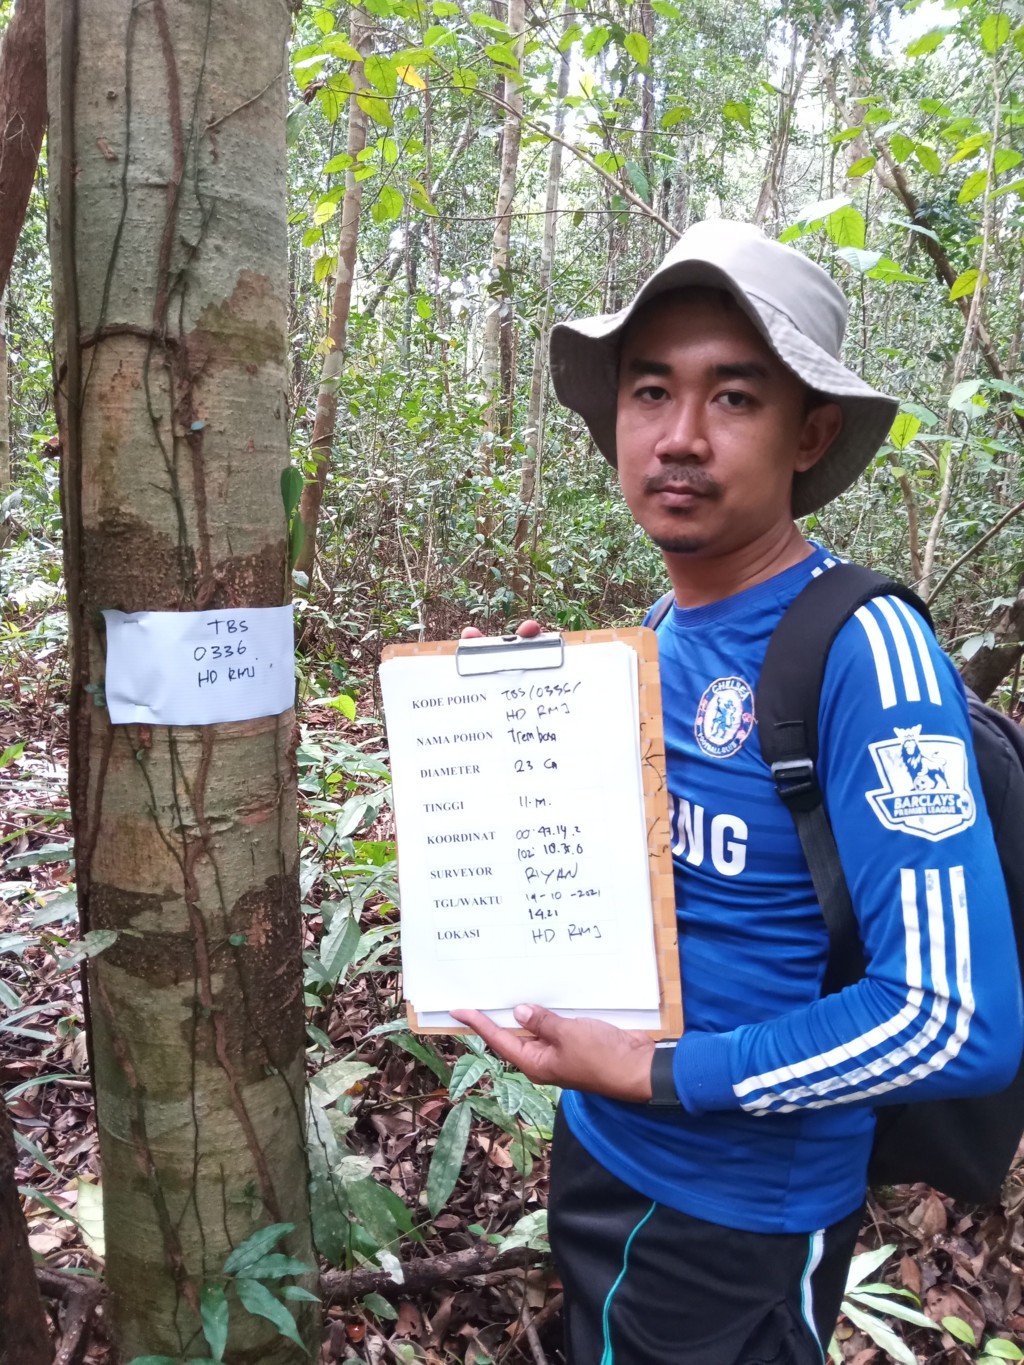 TBS
0336
HD RMJ
KODE POHON TBS/0336/
HD RMJ
NAMA POHON Trembosa
DIAMETER 23 Cm
TINGGI 11.M.
KOORDINAT 00.47.14.2
102 10.3.0
SURVEYOR RIYAN
TGL/WAKTU 19-10-2021
14.21
LOKASI HD RMJ
CHELSEA
FOOTBALL CLUB
NG
BARCLAYS
PREMIER LEAGUE